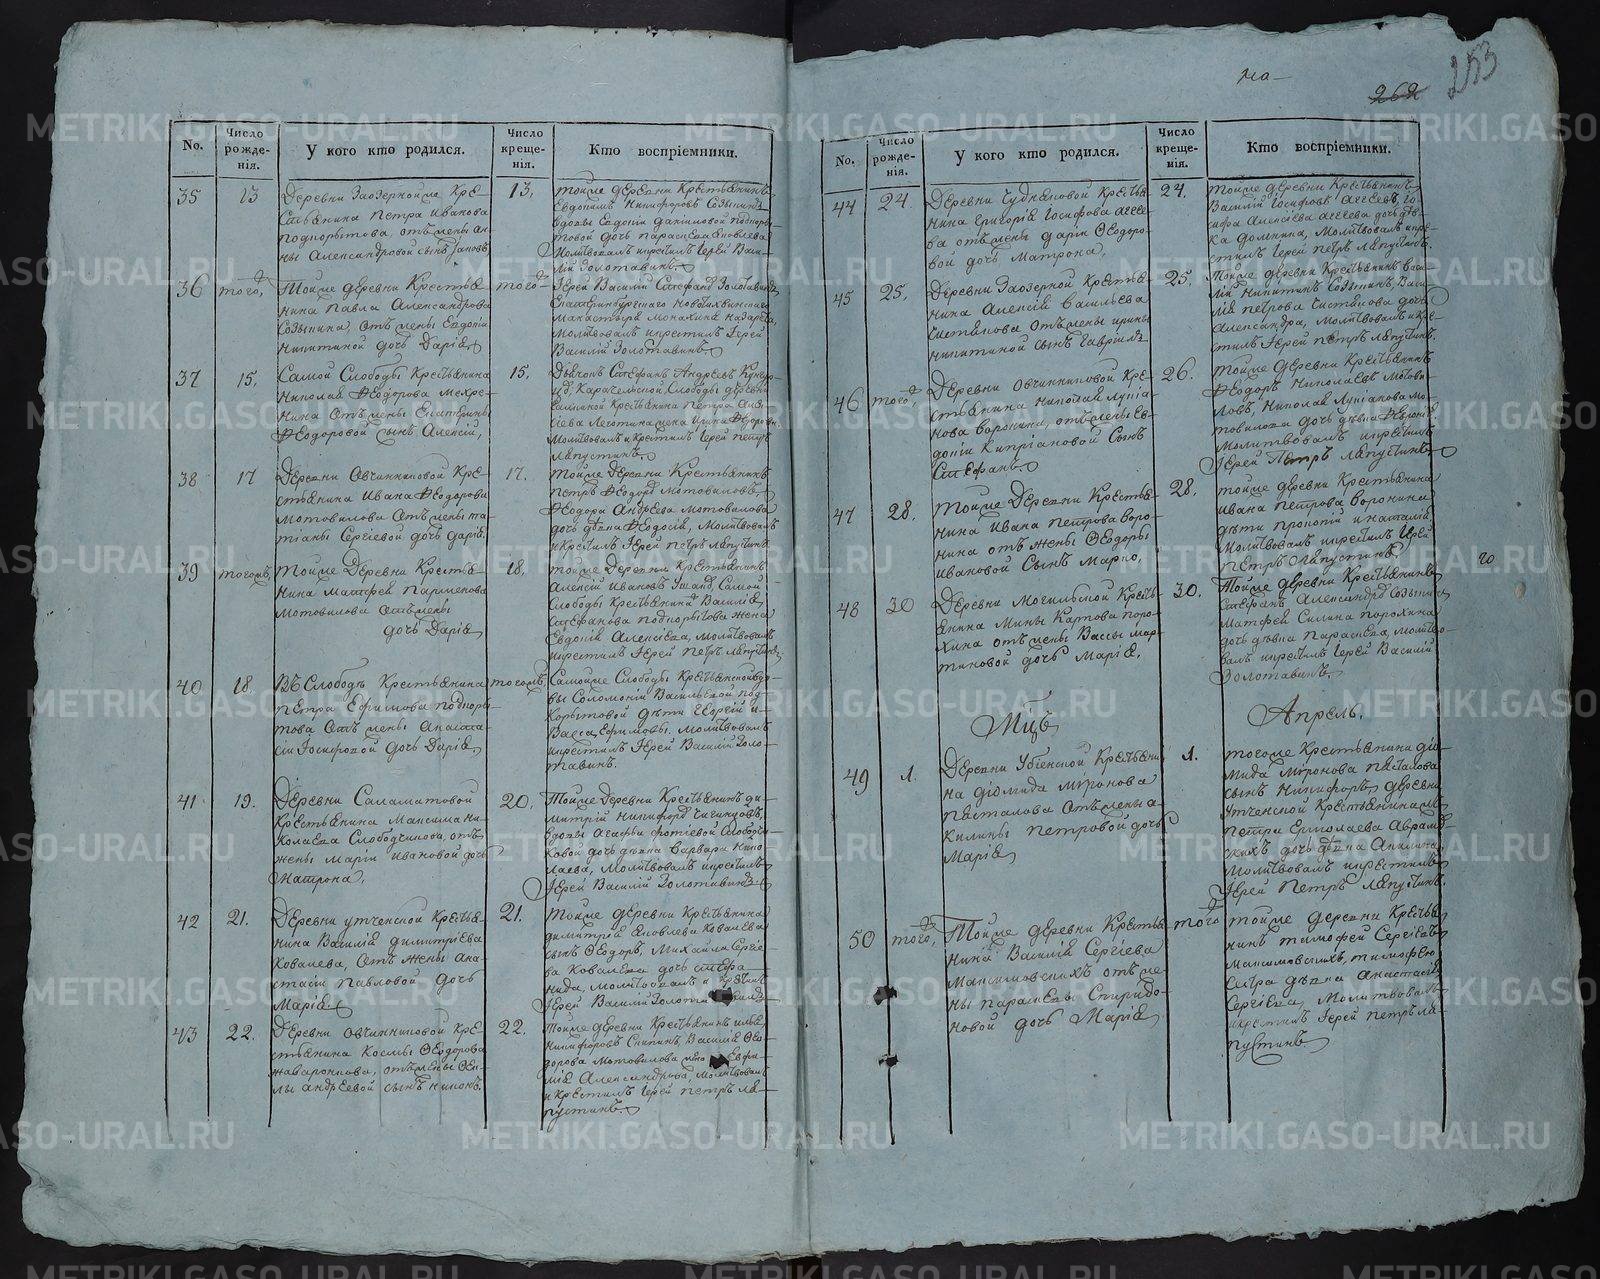 на
262
253
No.
Число рожде-нія.
У кого кто родился.
Число креще-нія.
Кто воспріемники.
35
13
Деревни Заозерной кре-
стьянина Петра Иванова
Подкорытова, отъ жены Ан-
ны Александровой сынъ
13,
Тойже деревни крестьянинъ
Евдокимъ Никифоровъ Созыкинъ
вдовы Евдокіи
дочь Параскева
Молитвовалъ и крестилъ Іерей Васи-
лій Золотавинъ.
36
того
Тойже деревни крестья-
нина Павла Александрова
Созыкина, отъ жены Евдокіи
Никитиной дочь Дарія
того
Іерей Василій Стефанов Золотавинъ
Екатеринбургскаго Новотихвинскаго
монастыря монахиня Назарета,
молитвовалъ и крестилъ Іерей
Василій Золотавинъ
37
15,
Самой Слободы крестьянина
Николая Ѳеодорова
отъ жены Екатерины
Ѳеодоровой сынъ Алексій,
15.
Дьячонъ Стефанъ Андреевъ
Карачельской Слободы деревни
крестьянина Петра
жена Ирина Ѳеодорова
Молитвовалъ и крестилъ Іерей Петръ
Лапустинъ.
38
17
Деревни Овчинниковой кре-
стьянина Ивана Ѳеодорова
Мотовилова отъ жены Та-
тіаны Сергіевой дочь Дарія.
17.
Тойже деревни крестьянинъ
Петръ Ѳеодоров Мотовиловъ,
Ѳеодора Андреева Мотовилова
дочь дѣвка Ѳеодосія, Молитвовалъ
и крестилъ Іерей Петръ Лапустинъ
39
тогожъ,
Тойже деревни крестья-
нина Матфея Парменова
Мотовилова отъ жены
дочь Дарія
18.
Тойже деревни крестьянинъ
Алексій Ивановъ Самой
Слободы крестьянина Василія
Стефанова Подкорытова жена
Евдокія Алексіева, молитвовалъ
и крестилъ Іерей Петръ Лапустинъ
40
18.
Въ Слободѣ крестьянина
Петра Ефимова Подкоры-
това отъ жены Анаста-
сіи Іосифовой дочь Дарія
тогожъ
Самойже Слободы крестьянской вдо-
вы Соломоніи Васильевой Под-
корытовой дѣти Георгій и
Васса Ефимовы. Молитвовалъ
и крестилъ Іерей Василій Золо-
тавинъ.
41
19.
Деревни Саламатовой
крестьянина Максима Ни-
колаева Слободчикова, отъ
жены Маріи Ивановой дочь
Матрона,
20.
Тойже деревни крестьянинъ Ди-
митрій Никифоров
вдовы Агафьи Фотіевой Слободчи-
ковой дочь дѣвка Варвара Нико-
лаева, Молитвовалъ и крестилъ
Іерей Василій Золотавинъ
42
21.
Деревни Утченской крестья-
нина Василія Димитріева
Ковалева, отъ жены Ана-
стасіи Павловой дочь
Марія
21.
Тойже деревни крестьянина
Димитрія Яковлева Ковалева
сынъ Ѳеодоръ, Михайла Сергіе-
ва Ковалева дочь Стефа-
нида, молитвовалъ и крестилъ
Іерей Василій Золотавинъ
43
22.
Деревни Овчинниковой кре-
стьянина Космы Ѳеодорова
Жаворонкова, отъ жены Ѳек-
лы Андреевой сынъ Никонъ.
22.
Тойже деревни крестьянинъ Илья
Никифоровъ Василія Ѳео-
дорова Мотовилова жена Евфи-
мія Александрова, молитвовалъ
и крестилъ Іерей Петръ Ла-
пустинъ.
No.
Число рожде-нія.
У кого кто родился.
Число креще-нія.
Кто воспріемники.
44
24.
Деревни Чудняковой крестья-
нина Григорія Іосифова Агѣе-
ва отъ жены Даріи Ѳеодоро-
вой дочь Матрона,
24.
Тойже деревни крестьянинъ
Василій Іосифовъ Агѣевъ, Іо-
сифа Алексіева Агѣева дочь дѣв-
ка Домника, Молитвовалъ и кре-
стилъ Іерей Петръ Лапустинъ.
45
25,
Деревни Заозерной крестья-
нина Алексія Васильева
Чистякова отъ жены Ирины
Никитиной сынъ Гавріилъ
25.
Тойже деревни крестьянинъ Васи-
лій Никитинъ Созыкинъ, Васи-
лія Петрова Чистякова дочь
Александра, Молитвовалъ и кре-
стилъ Іерей Петръ Лапустинъ.
46
того
Деревни Овчинниковой кре-
стьянина Николая Лукія-
нова Воронина, отъ жены Ев-
докіи Кипріановой Сынъ
Стефанъ
26.
Тойже деревни крестьянинъ
Ѳеодоръ Николаевъ Мотови-
ловъ, Николая Лукіанова Мо-
товилова дочь дѣвка Ѳевронія
Молитвовалъ и крестилъ
Іерей Петръ Лапустинъ
47
28.
Тойже Деревни крестья-
нина Ивана Петрова Воро-
нина отъ жены Ѳеодоры
Ивановой Сынъ Марко,
28,
Тойже деревни крестьянина
Ивана Петрова Воронина
дѣти Прокопій и Наталія
Молитвовалъ и крестилъ Іерей
Петръ Лапустинъ
48
30
Деревни Могильской кресть-
янина Мины Карпова Поро-
хина отъ жены Вассы Мар-
тиновой дочь Марія,
30.
Тойже деревни крестьянинъ
Стефанъ Александров Созыкинъ
Матфея Силина Порохина
дочь дѣвка Параскева, Молитво-
валъ и крестилъ Іерей Василій
Золотавинъ.
Мцъ
Апрель.
49
1.
Деревни Убіенской крестьяни-
на Діомида Миронова
Пасталова отъ жены А-
килины Петровой дочь
Марія
1.
тогоже крестьянина Діо-
мида Миронова Пасталова
сынъ Никифоръ деревни
Утченской крестьянина
Петра Ермолаева Аврам-
скихъ дочь дѣвка Акилина,
Молитвовалъ и крестилъ
Іерей Петръ Лапустинъ.
50
того,
Тойже деревни крестья-
нина Василія Сергіева
Максимовскихъ отъ же-
ны Параскевы Спиридо-
новой дочь Марія
того
Тойже деревни крестья-
нинъ Тимофей Сергіевъ
Максимовскихъ, Тимофею
сестра дѣвка Анастасія
Сергіева, Молитвовалъ
и крестилъ Іерей Петръ Ла-
пустинъ
20
METRIKI.GASO-URAL.RU